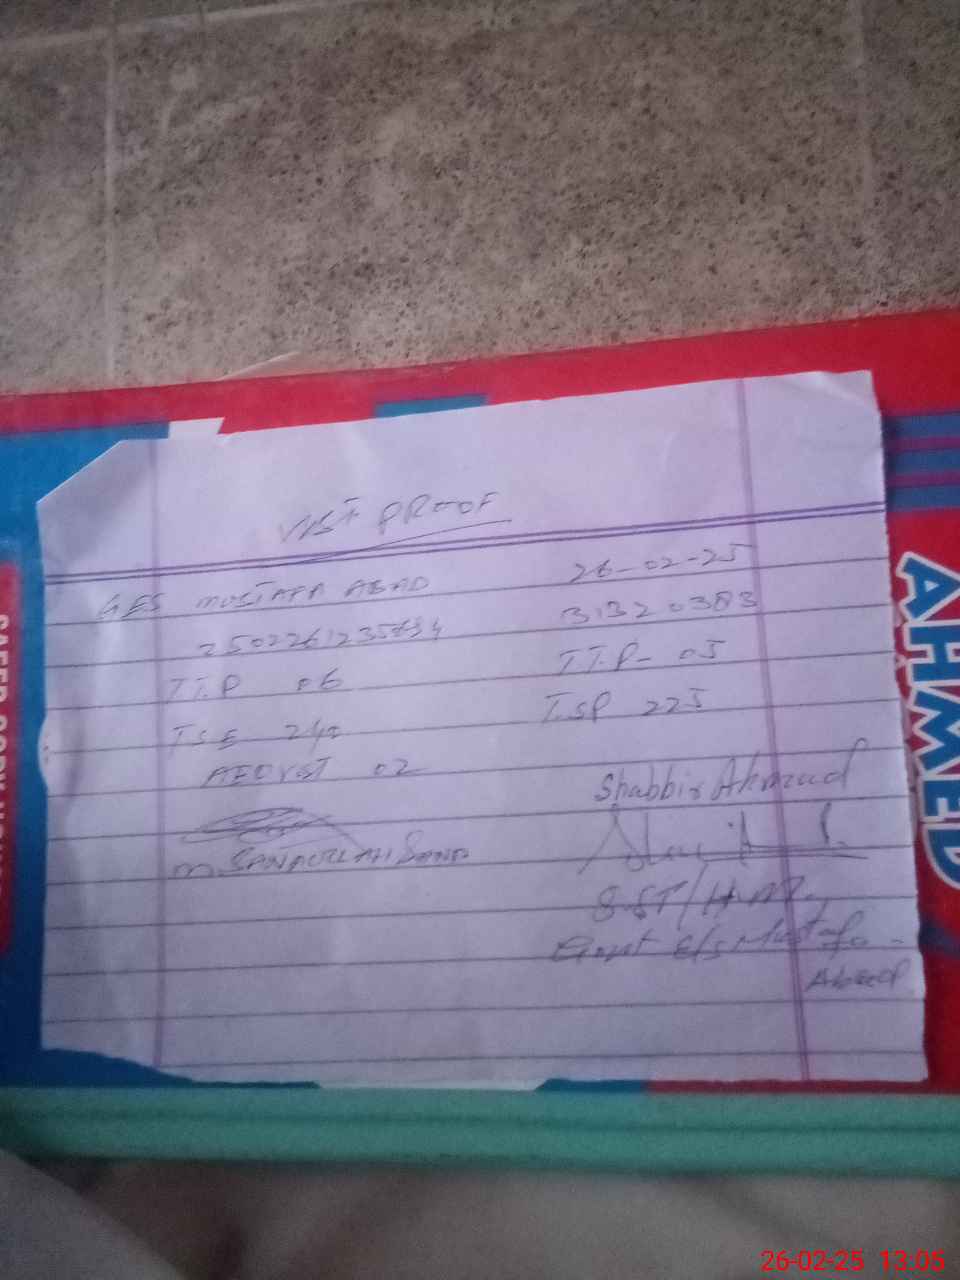 VIST PROOF
GES MUSTAFA ABAD 26-02-25
31320383
T.T.P 06 T.T.P- 05
T.S.E 240 T.SP 225
AEO VST 02
Shabbir Ahmad
M SANAULLAH
S.ST/H.M
Govt E/S Mustafa-
Abad
AHMED
26-02-25 13:05